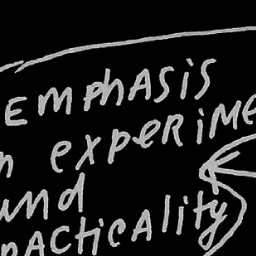 EMPHASIS
n EXPERIME
und
PRACTICALITY